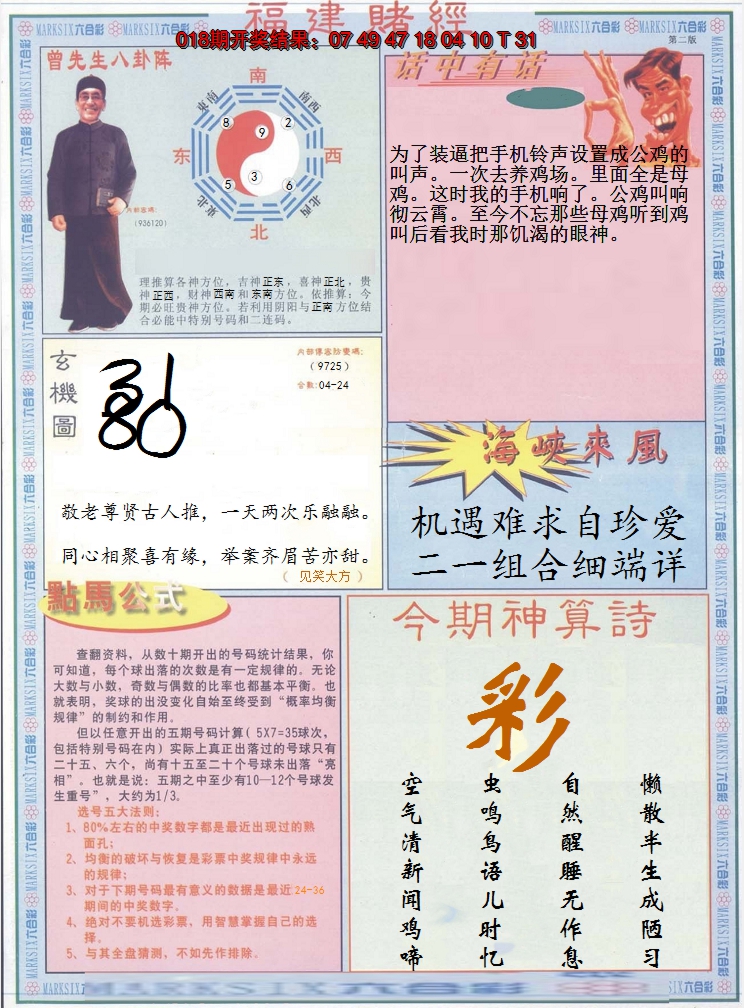 福建賭經
018期开奖结果：07 49 47 18 04 10 T 31
MARKSIX六合彩
第二版
曾先生八卦阵
南
东南
西南
8
9
2
东
西
5
3
6
東北
西北
北
内部密碼：
（936120）
理推算各神方位，吉神正东，喜神正北，贵
神正西，财神西南和东南方位。依推算：今
期必旺贵神方位。若利用阴阳与正南方位结
合必能中特别号码和二连码。
话中有话
为了装逼把手机铃声设置成公鸡的
叫声。一次去养鸡场。里面全是母
鸡。这时我的手机响了。公鸡叫响
彻云霄。至今不忘那些母鸡听到鸡
叫后看我时那饥渴的眼神。
玄機圖
内部傳密防變碼：
（9725）
合數：04-24
敬老尊贤古人推，一天两次乐融融。
同心相聚喜有缘，举案齐眉苦亦甜。
（ 见笑大方 ）
海峽來風
机遇难求自珍爱
二一组合细端详
點馬公式
查翻资料，从数十期开出的号码统计结果，你
可知道，每个球出落的次数是有一定规律的。无论
大数与小数，奇数与偶数的比率也都基本平衡。也
就表明，奖球的出没变化自始至终受到“概率均衡
规律”的制约和作用。
但以任意开出的五期号码计算（5X7=35球次，
包括特别号码在内）实际上真正出落过的号球只有
二十五、六个，尚有十五至二十个号球未出落“亮
相”。也就是说：五期之中至少有10—12个号球发
生重号”，大约为1/3。
选号五大法则：
1、80%左右的中奖数字都是最近出现过的熟
面孔；
2、均衡的破坏与恢复是彩票中奖规律中永远
的规律；
3、对于下期号码最有意义的数据是最近24-36
期间的中奖数字。
4、绝对不要机选彩票，用智慧掌握自己的选
择。
5、与其全盘猜测，不如先作排除。
今期神算詩
彩
懒散半生成陋习
自然醒睡无作息
虫鸣鸟语儿时忆
空气清新闻鸡啼